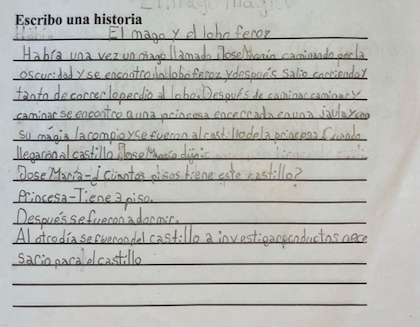 Escribo una historia
El mago y el lobo feroz
Había una vez un mago llamado Jose María caminando por la
oscuridad y se encontro al lobo feroz y después salio corriendo y
tanto de correr lo perdio al lobo. Después de caminar caminar y
caminar se encontro a una princesa encerrada en una jaula y con
su magia la rompio y se fueron al castillo de la princesa Cuando
llegaron al castillo Jose María dijo:
Jose María-¿Cuantos pisos tiene este castillo?
Princesa-Tiene 3 piso.
Después se fueron a dormir.
Al otro día se fueron del castillo a investigar productos nece
sario para el castillo